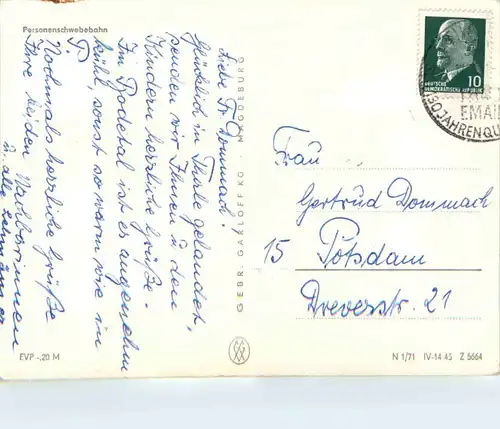 Personenschwebebahn
Liebe Fr. Dommach!
Glücklich in Thale gelandet,
senden wir Ihnen u. den
Kindern herzliche Grüße.
Im Bodetal ist es angenehm
kühl, sonst so warm wie in
P.
Nochmals herzliche Grüße
Ihre beiden Nachbarinnen
u. alle
EVP -.20 M
GEBR. GARLOFF KG · MAGDEBURG
10
DEUTSCHE
DEMOKRATISCHE REPUBLIK
EMAI
JAHREN QU
Frau
Gertrud Dommach
15 Potsdam
Dreverstr. 21
N 1/71 IV-14-45 Z 5664